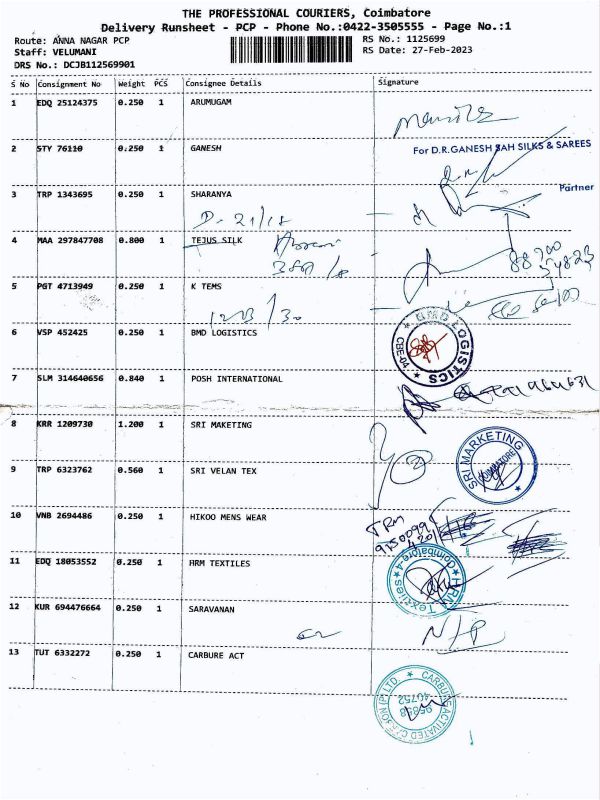 THE PROFESSIONAL COURIERS, Coimbatore
Delivery Runsheet - PCP - Phone No.:0422-3505555 - Page No.:1
Route: ANNA NAGAR PCP RS No.: 1125699
Staff: VELUMANI RS Date: 27-Feb-2023
DRS No.: DCJB112569901
S No Consignment No Weight PCS Consignee Details Signature
1 EDQ 25124375 0.250 1 ARUMUGAM
2 STY 76110 0.250 1 GANESH
For D.R.GANESH SAH SILKS & SAREES
Partner
3 TRP 1343695 0.250 1 SHARANYA
D- 21/18
4 MAA 297847708 0.800 1 TEJUS SILK
5 PGT 4713949 0.250 1 K TEMS
6 VSP 452425 0.250 1 BMD LOGISTICS
BMD LOGISTICS CBE-04
7 SLM 314640656 0.840 1 POSH INTERNATIONAL
8 KRR 1209730 1.200 1 SRI MAKETING
SRI MARKETING COIMBATORE
9 TRP 6323762 0.560 1 SRI VELAN TEX
10 VNB 2694486 0.250 1 HIKOO MENS WEAR
11 EDQ 18053552 0.250 1 HRM TEXTILES
HRM Textiles Coimbatore-4
12 KUR 694476664 0.250 1 SARAVANAN
13 TUT 6332272 0.250 1 CARBURE ACT
CARBURE ACTIVATED CARBON (P) LTD.